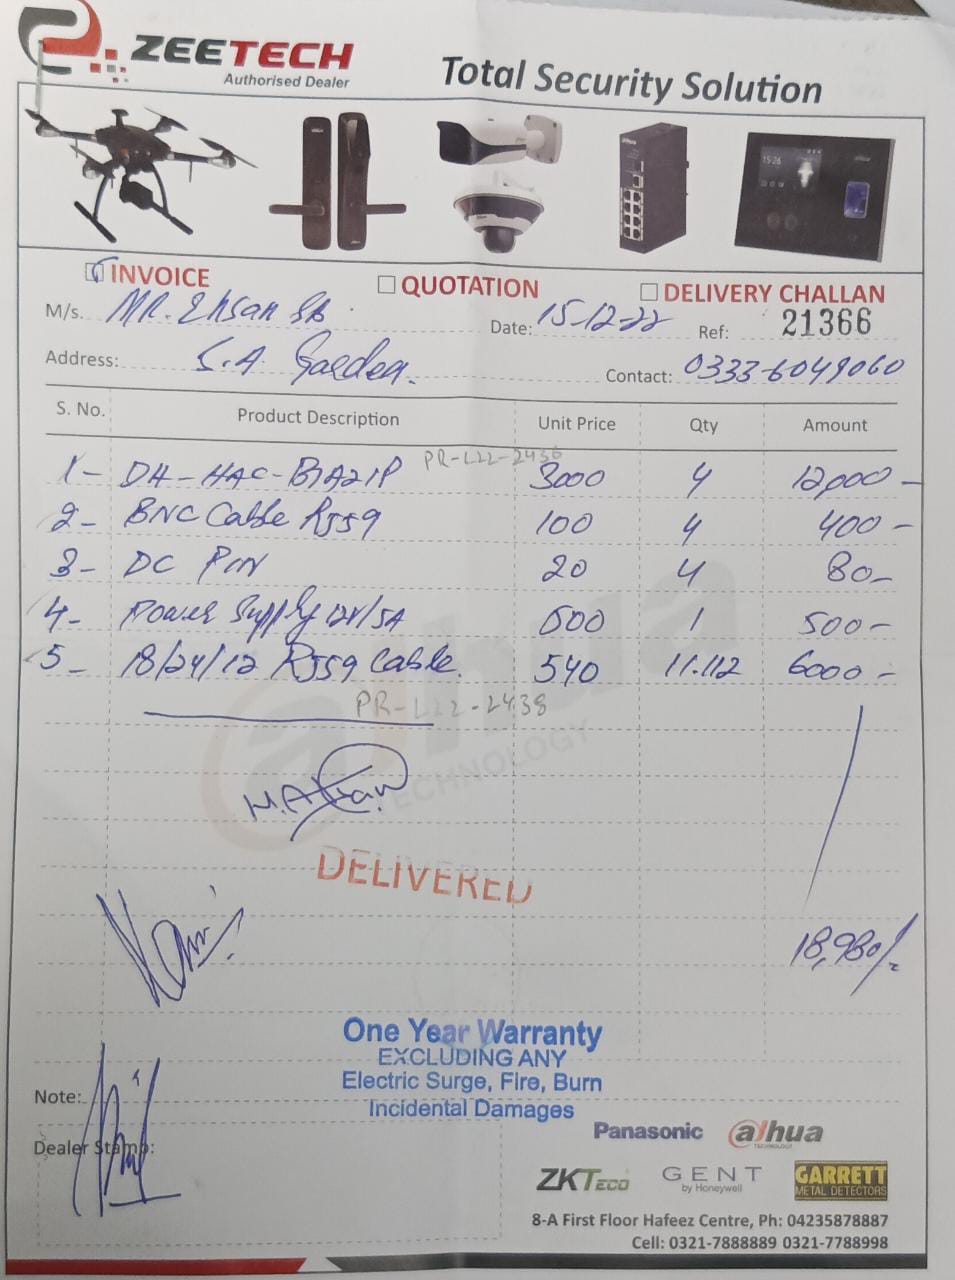 ZEETECH
Authorised Dealer
Total Security Solution
INVOICE QUOTATION DELIVERY CHALLAN
M/s. MR. Ehsan Sb. Date: 15-12-22 Ref: 21366
Address: S.A Garden. Contact: 0333-6049060
S. No. Product Description Unit Price Qty Amount
PR-L22-2436
1- DH-HAC-B1A21P 3000 4 12,000-
2- BNC Cable RJ59 100 4 400-
3- DC PIN 20 4 80-
4- Power Supply 12V/5A 500 1 500-
5- 18/24/12 RJ59 Cable. 540 11.112 6000-
PR-L22-2438
alhua
TECHNOLOGY
DELIVERED
18,980/-
One Year Warranty
EXCLUDING ANY
Electric Surge, Fire, Burn
Incidental Damages
Note:
Dealer Stamp:
Panasonic alhua
TECHNOLOGY
ZKTECO GENT GARRETT
by Honeywell METAL DETECTORS
8-A First Floor Hafeez Centre, Ph: 04235878887
Cell: 0321-7888889 0321-7788998